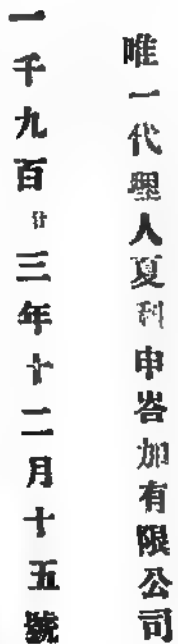 唯一代理人夏利申峇加有限公司
一千九百廿三年十二月十五號